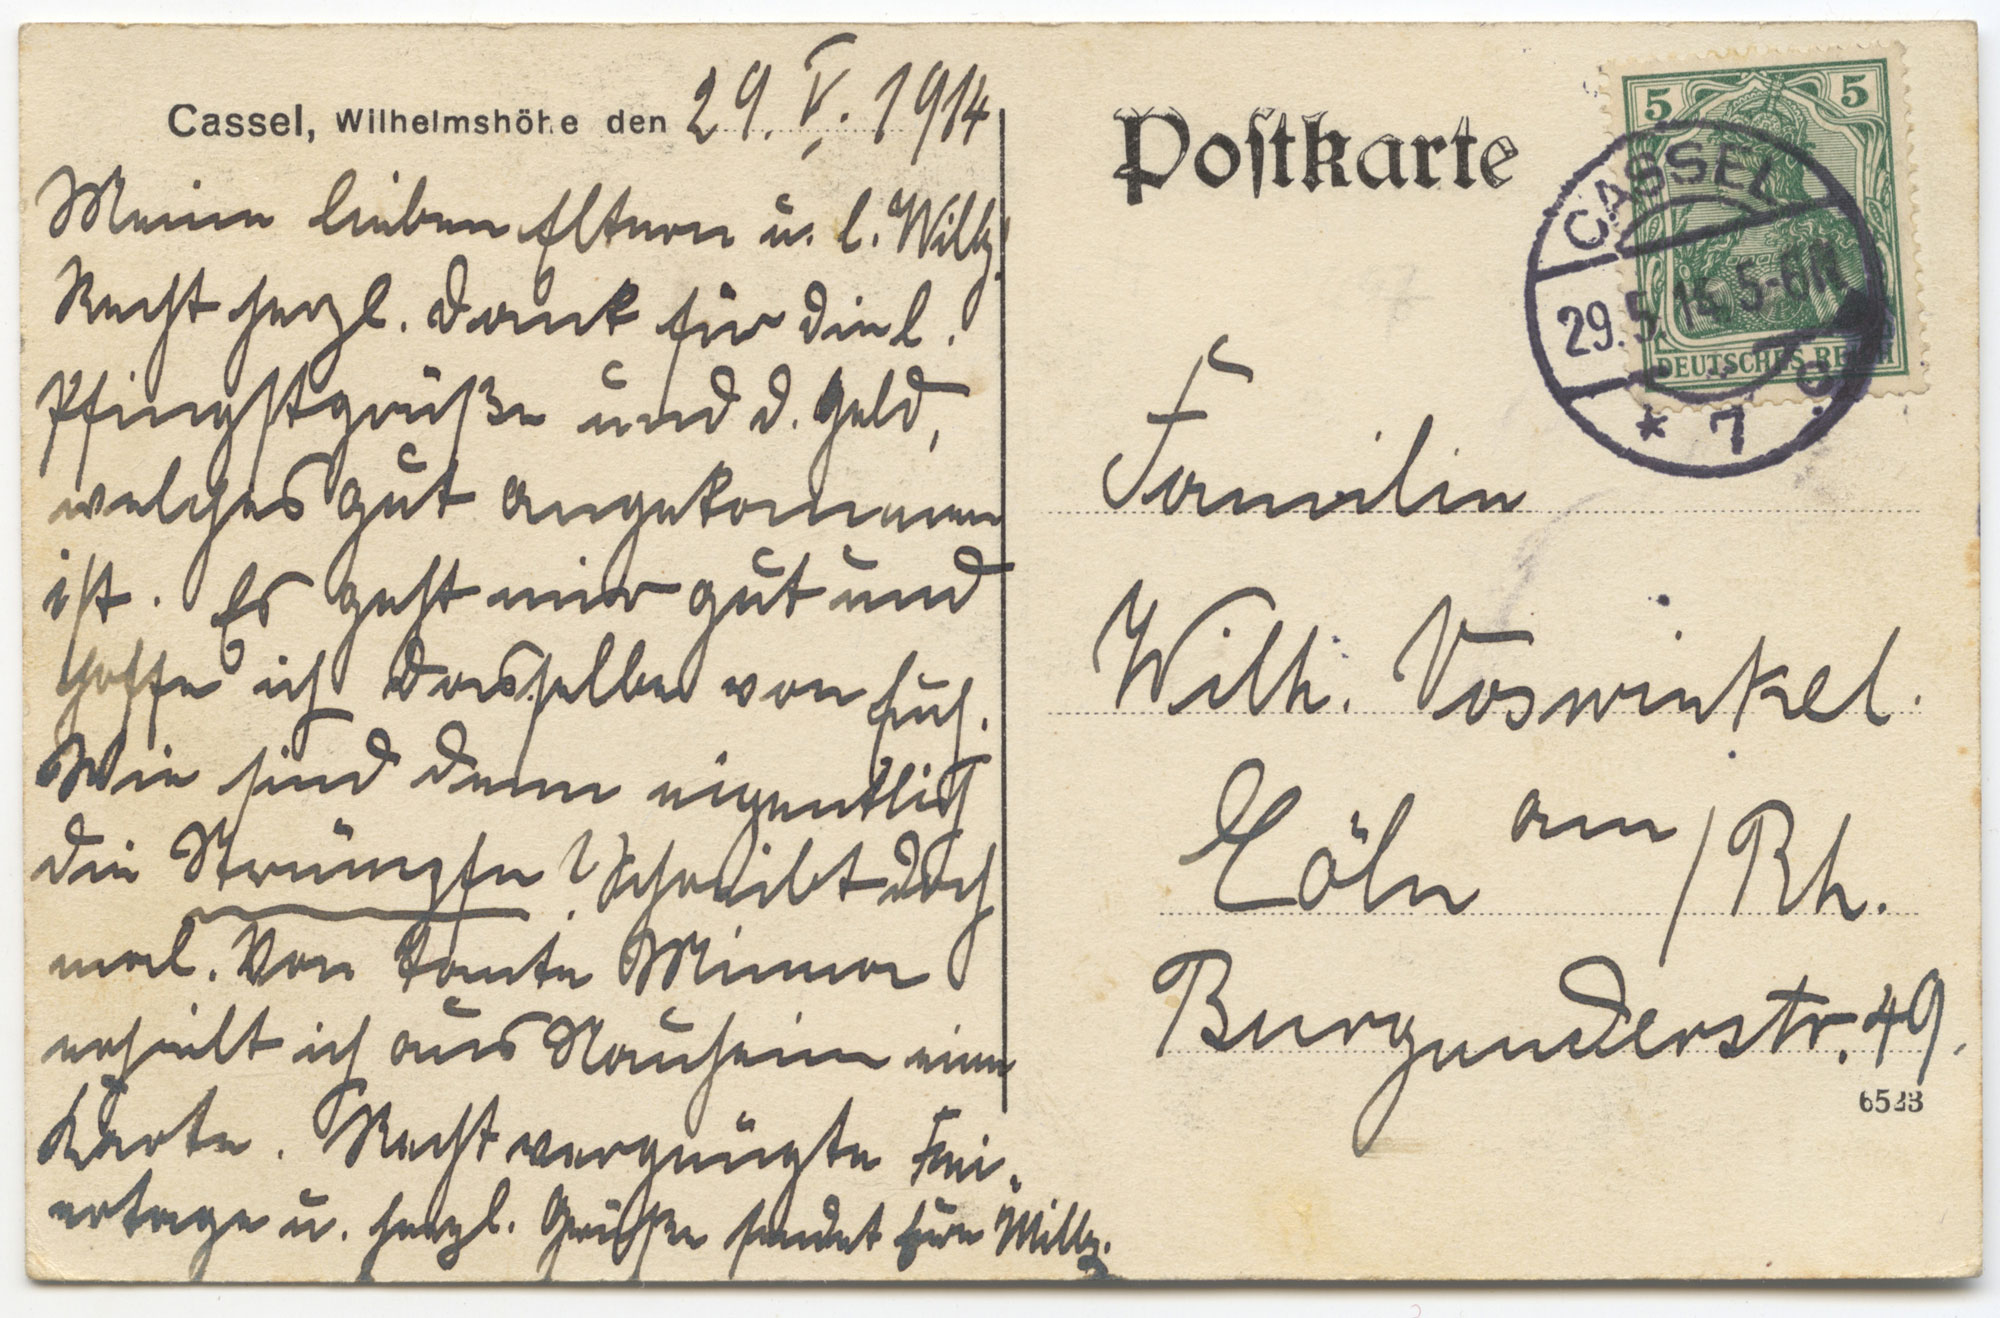 Cassel, Wilhelmshöhe den 29. V. 1914
Meine lieben Eltern u. l. Willy.
Recht herzl. Dank für die l.
Pfingstgrüße und d. Geld,
welches gut angekommen
ist. Es geht mir gut und
hoffe ich dasselbe von Euch.
Wie sind denn eigentlich
die Strümpfe? Schreibt doch
mal. Von Tante Minna
erhielt ich aus Nauheim eine
Karte. Recht vergnügte Fei-
ertage u. herzl. Grüße sendet Eure Milly.
Postkarte
5 5
DEUTSCHES REICH
CASSEL
29.5.14. 5-6N
* 7
Familie
Wilh. Voswinkel.
Cöln am/Rh.
Burgunderstr. 49.
6523